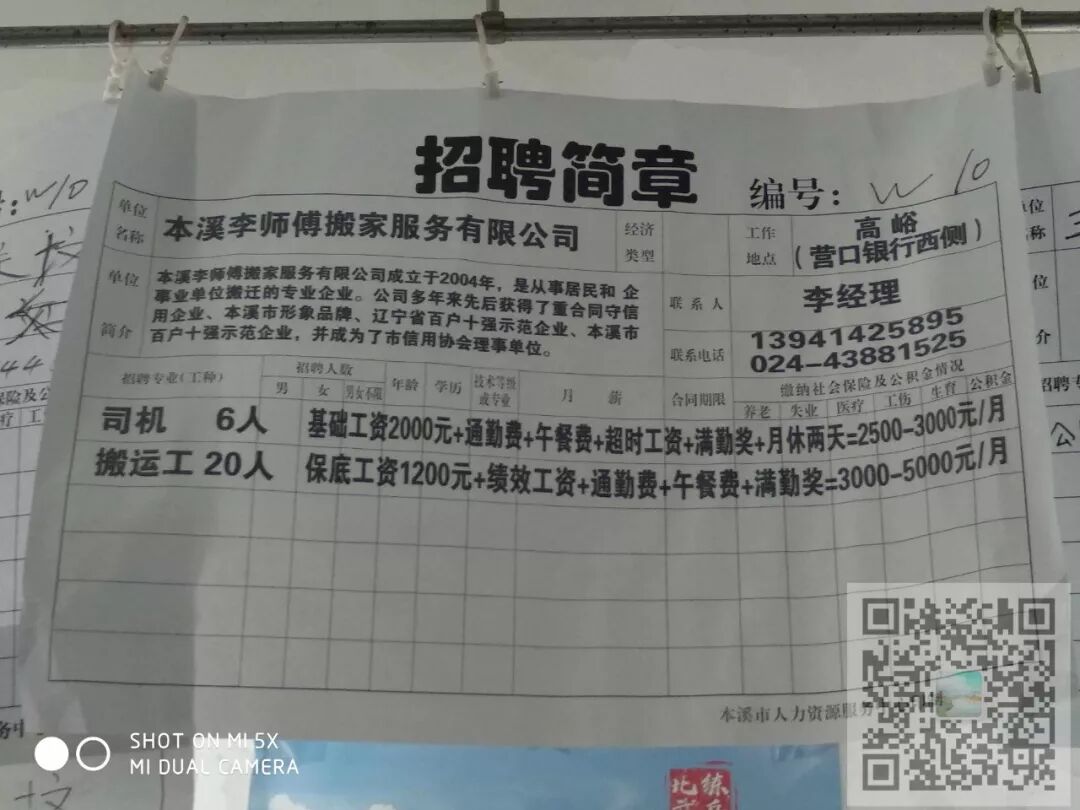 招聘简章
编号: W 10
单位名称
本溪李师傅搬家服务有限公司
经济类型
工作地点
高峪
(营口银行西侧)
单位简介
本溪李师傅搬家服务有限公司成立于2004年，是从事居民和 企
事业单位搬迁的专业企业。公司多年来先后获得了重合同守信
用企业、本溪市形象品牌、辽宁省百户十强示范企业、本溪市
百户十强示范企业，并成为了市信用协会理事单位。
联系人
李经理
联系电话
13941425895
024-43881525
招聘专业(工种)
招聘人数
男 女 男女不限
年龄
学历
技术等级或专业
月 薪
合同期限
缴纳社会保险及公积金情况
养老 失业 医疗 工伤 生育 公积金
司机 6人 基础工资2000元+通勤费+午餐费+超时工资+满勤奖+月休两天=2500-3000元/月
搬运工 20人 保底工资1200元+绩效工资+通勤费+午餐费+满勤奖=3000-5000元/月
本溪市人力资源服务
SHOT ON MI 5X
MI DUAL CAMERA